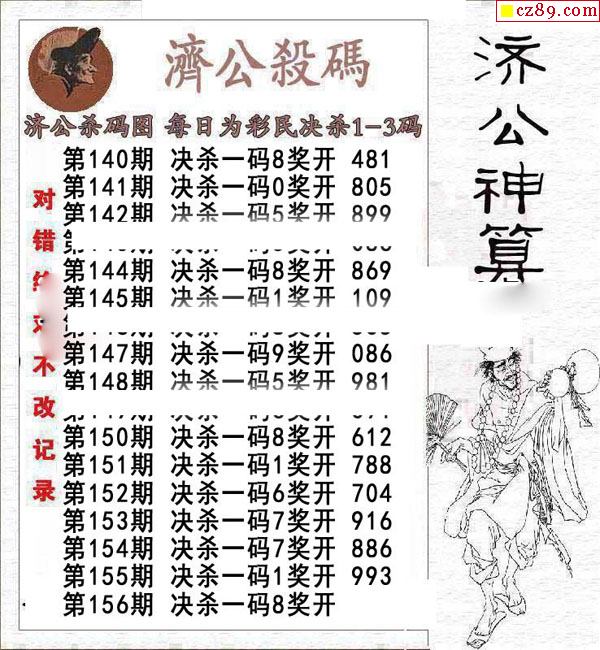 cz89.com
濟公殺碼
济公杀码图 每日为彩民决杀1-3码
第140期 决杀一码8奖开 481
第141期 决杀一码0奖开 805
第142期 决杀一码5奖开 899
第144期 决杀一码8奖开 869
第145期 决杀一码1奖开 109
第147期 决杀一码9奖开 086
第148期 决杀一码5奖开 981
第150期 决杀一码8奖开 612
第151期 决杀一码1奖开 788
第152期 决杀一码6奖开 704
第153期 决杀一码7奖开 916
第154期 决杀一码7奖开 886
第155期 决杀一码1奖开 993
第156期 决杀一码8奖开
对错不改记录
济公神算